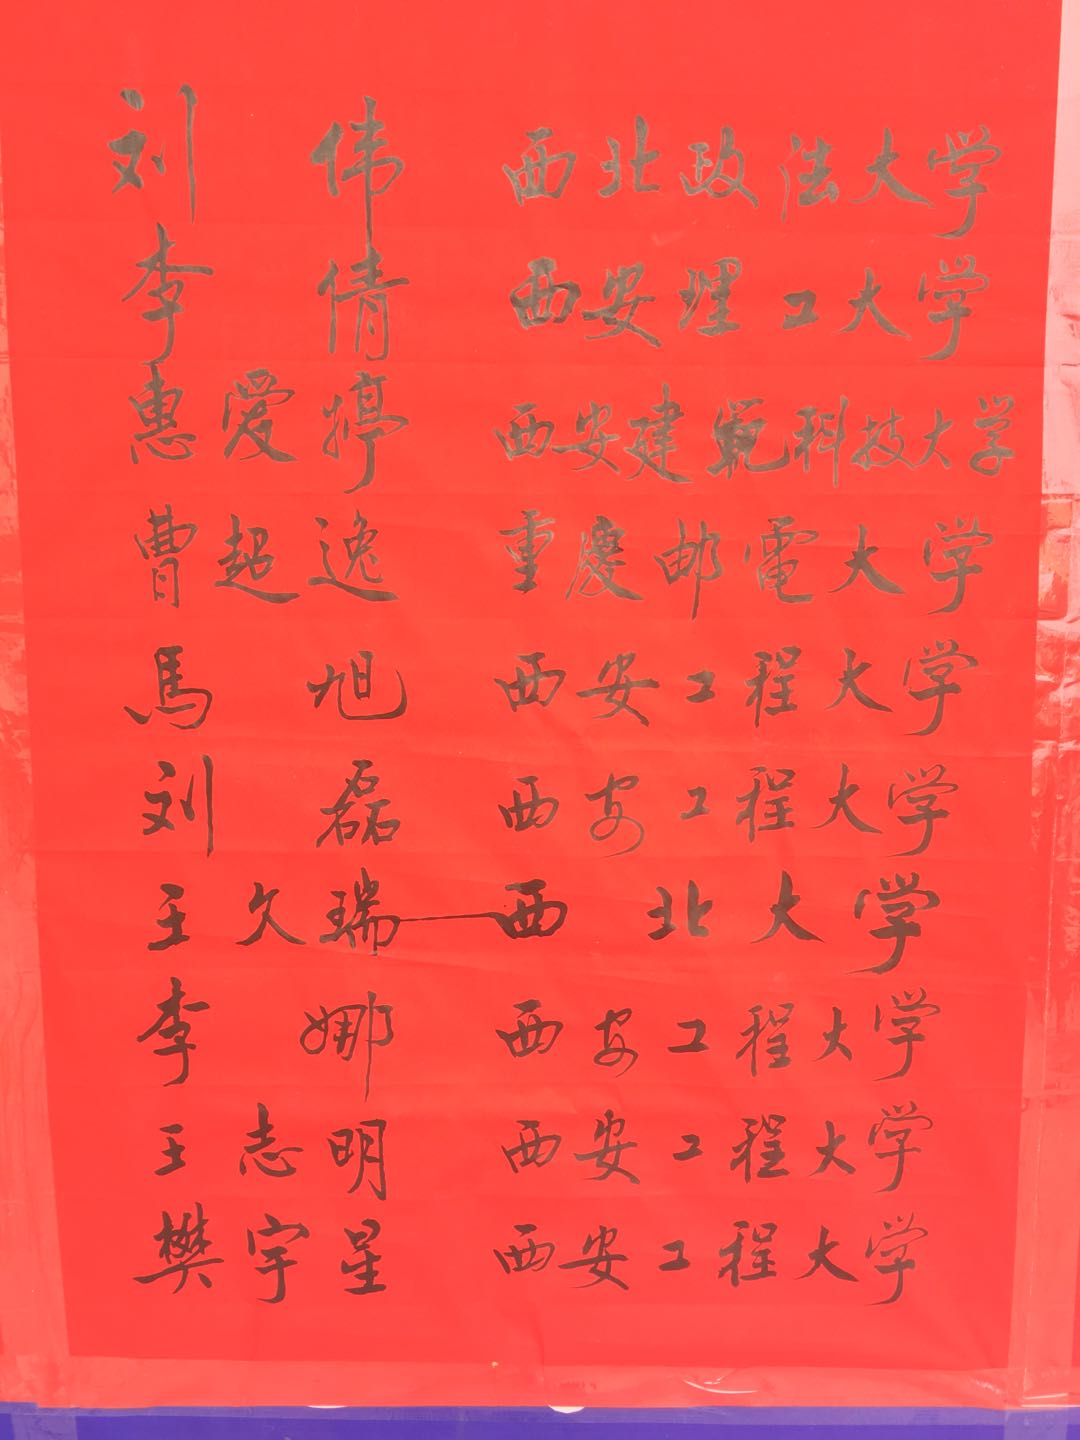 刘伟 西北政法大学
李倩 西安理工大学
惠爱婷 西安建筑科技大学
曹超逸 重慶邮電大学
馬旭 西安工程大学
刘磊 西安工程大学
王久瑞—西北大学
李娜 西安工程大学
王志明 西安工程大学
樊宇星 西安工程大学